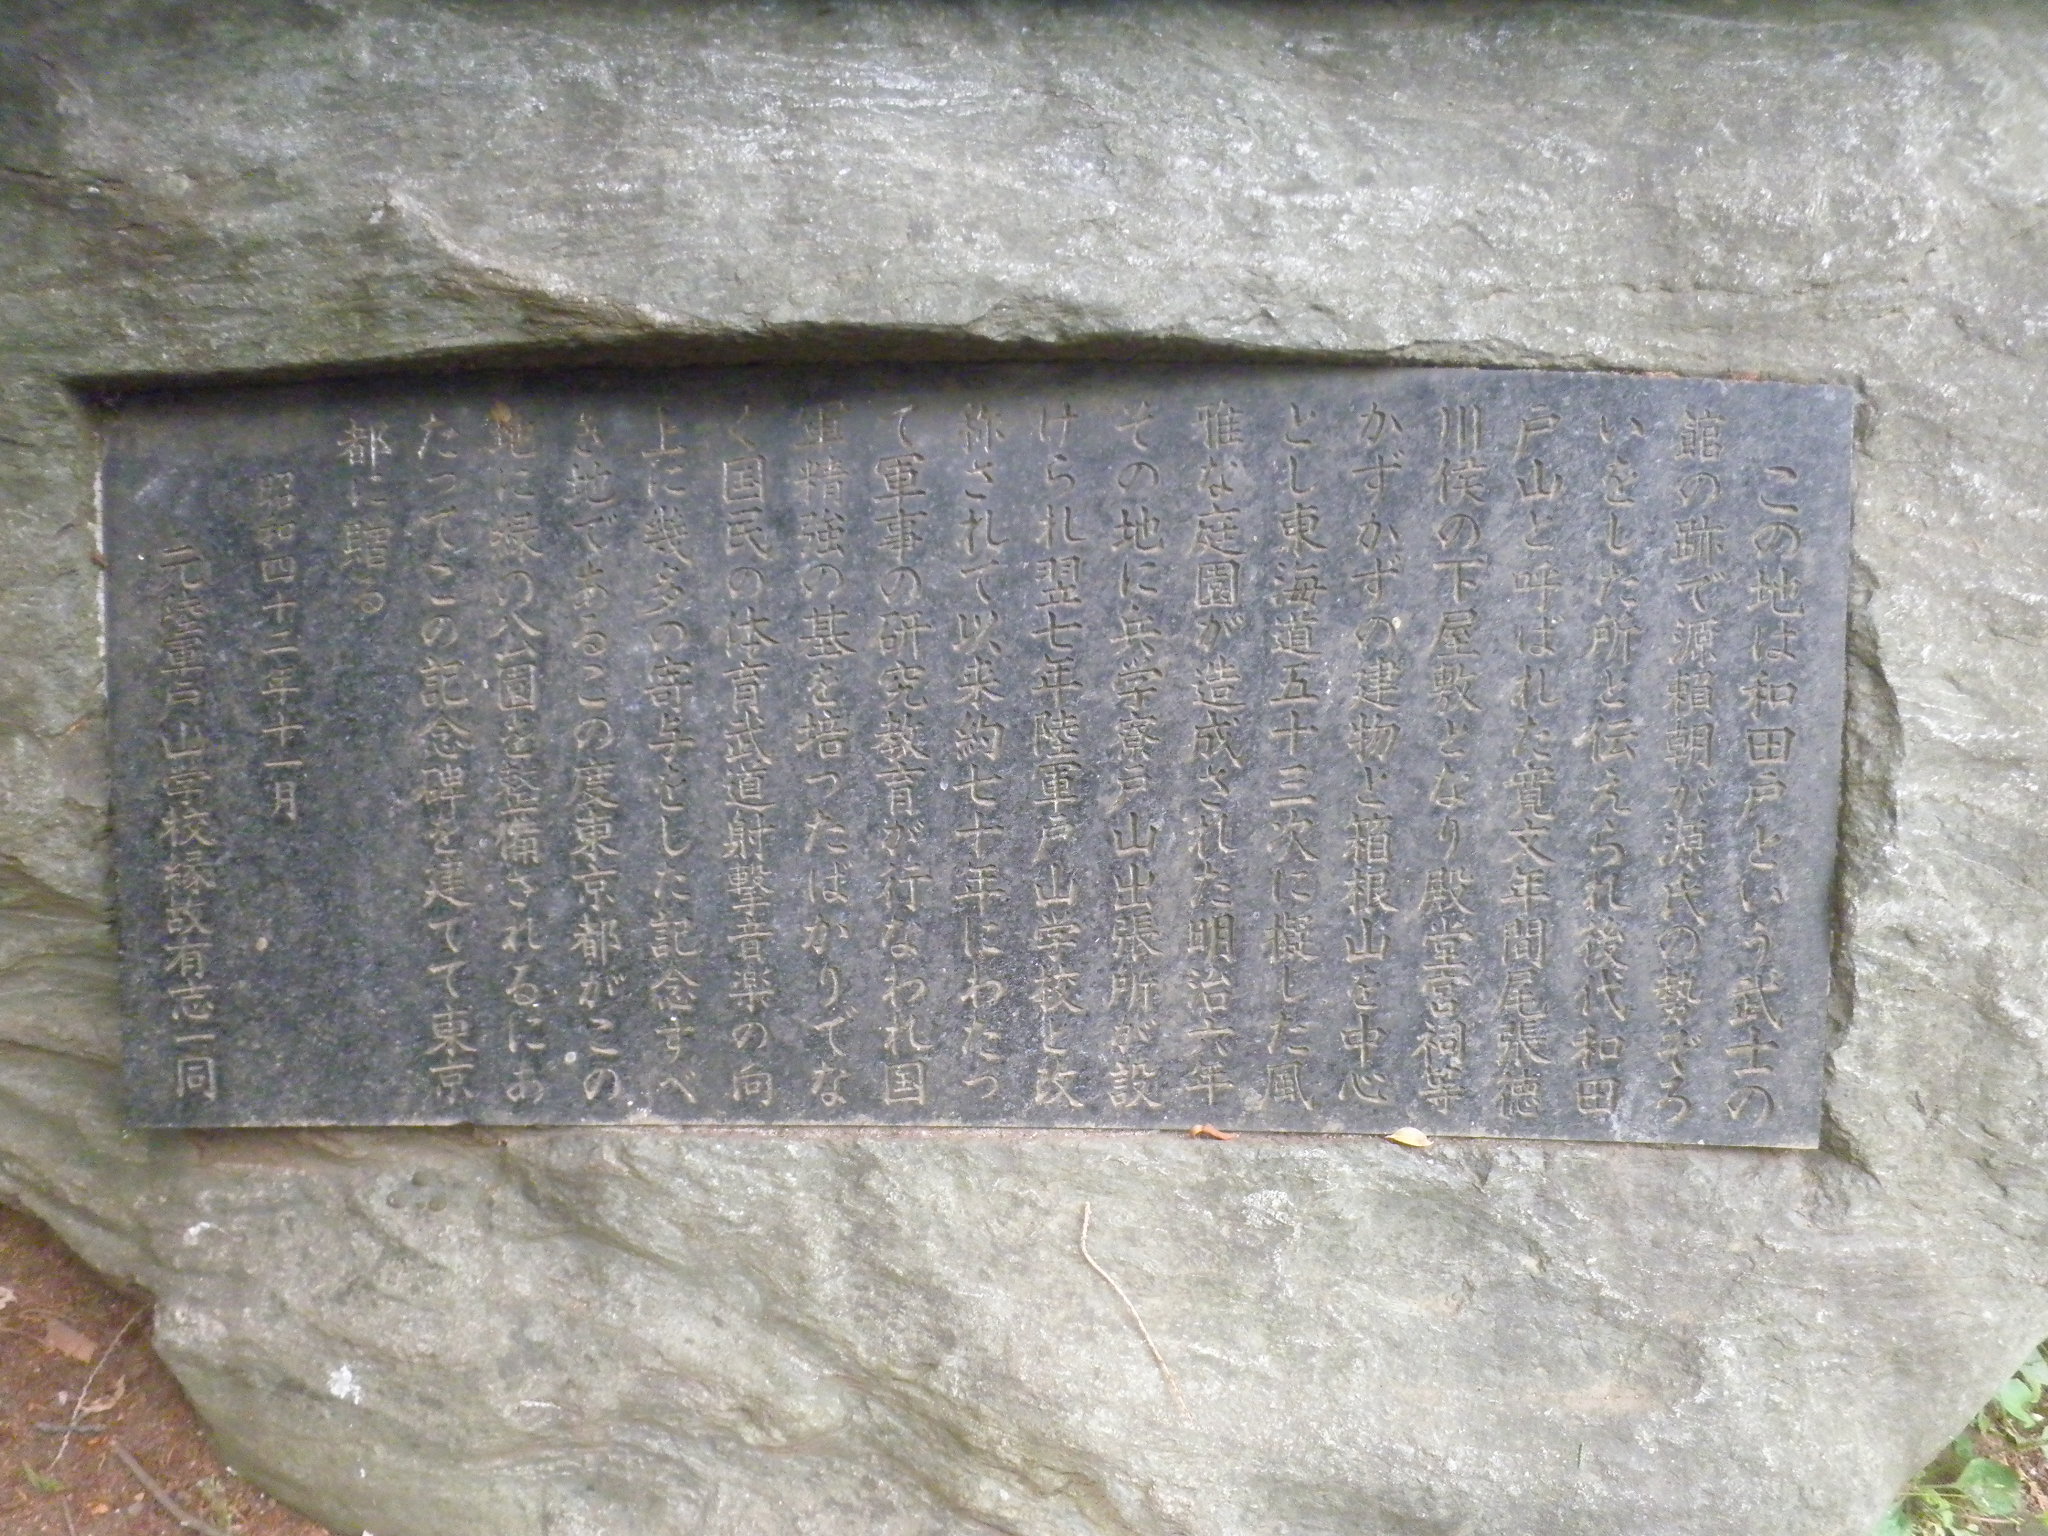 この地は和田戸という武士の
館の跡で源頼朝が源氏の勢ぞろ
いをした所と伝えられ後代和田
戸山と呼ばれた寛文年間尾張徳
川侯の下屋敷となり殿堂宮祠等
かずかずの建物と箱根山を中心
とし東海道五十三次に擬した風
雅な庭園が造成された明治六年
その地に兵学寮戸山出張所が設
けられ翌七年陸軍戸山学校と改
称されて以来約七十年にわたっ
て軍事の研究教育が行なわれ国
軍精強の基を培つたばかりでな
く国民の体育武道射撃音楽の向
上に幾多の寄与をした記念すべ
き地であるこの度東京都がこの
地に緑の公園を整備されるにあ
たってこの記念碑を建てて東京
都に贈る
昭和四十二年十一月
元陸軍戸山学校縁故有志一同